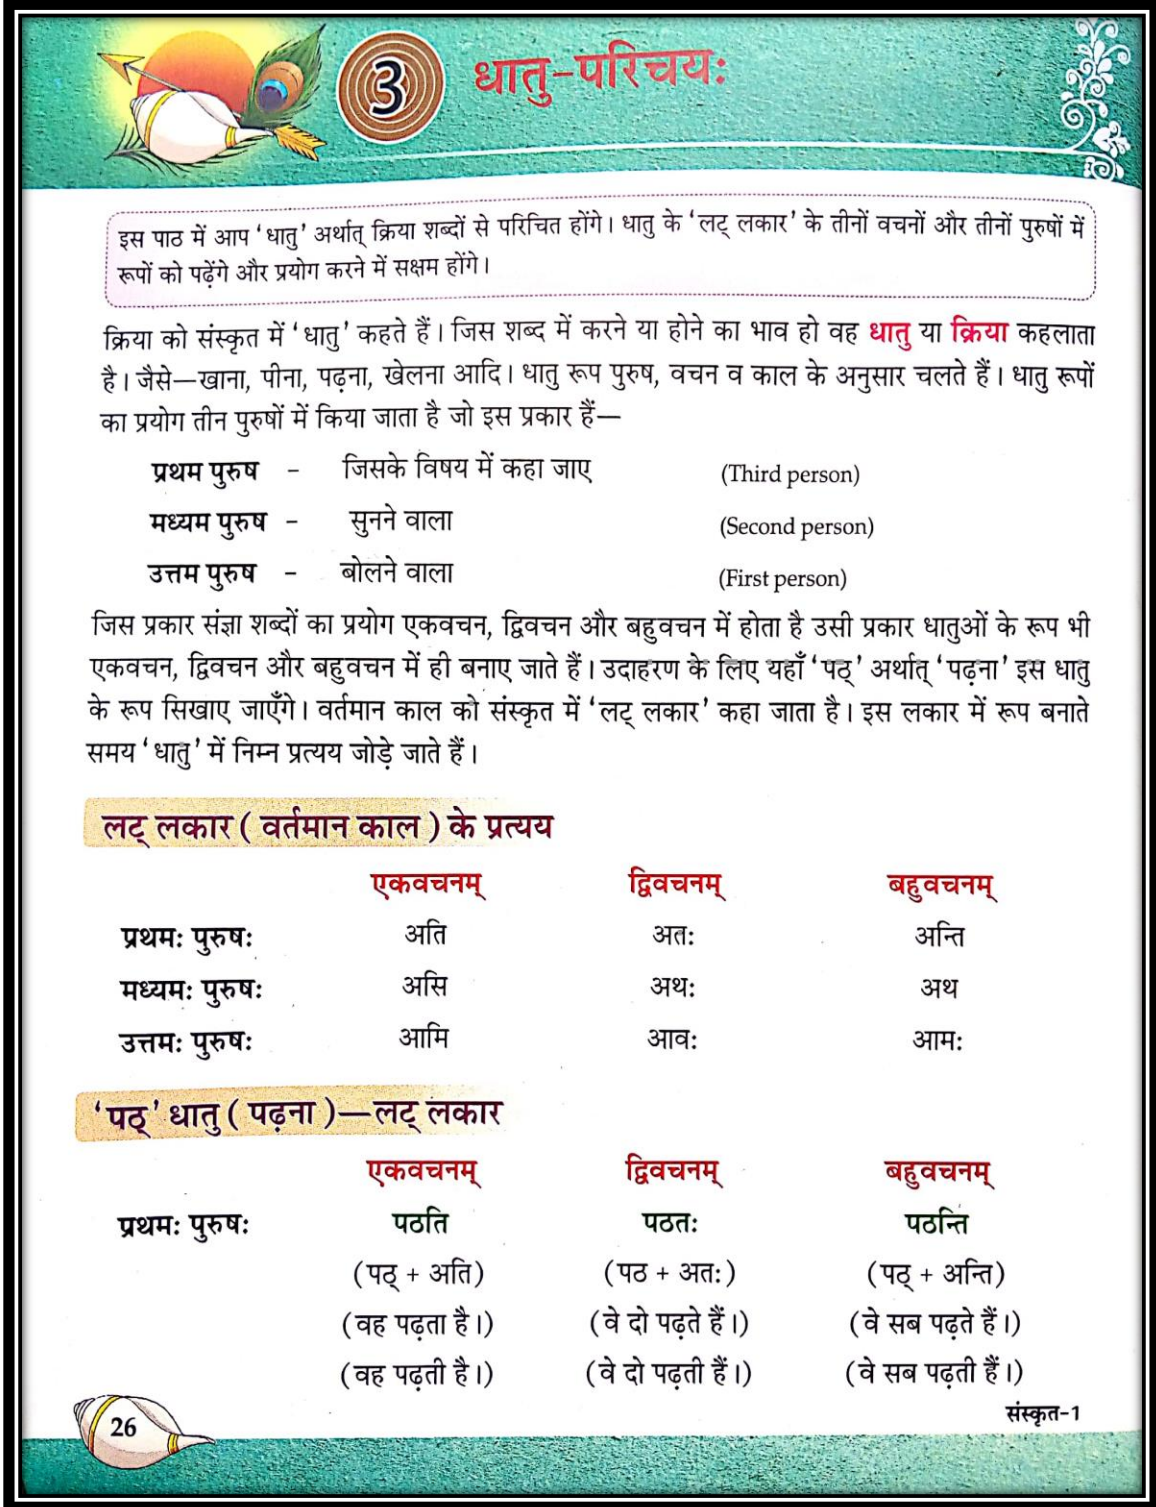 3
धातु-परिचयः
इस पाठ में आप 'धातु' अर्थात् क्रिया शब्दों से परिचित होंगे। धातु के 'लट् लकार' के तीनों वचनों और तीनों पुरुषों में
रूपों को पढ़ेंगे और प्रयोग करने में सक्षम होंगे।
क्रिया को संस्कृत में 'धातु' कहते हैं। जिस शब्द में करने या होने का भाव हो वह धातु या क्रिया कहलाता
है। जैसे—खाना, पीना, पढ़ना, खेलना आदि। धातु रूप पुरुष, वचन व काल के अनुसार चलते हैं। धातु रूपों
का प्रयोग तीन पुरुषों में किया जाता है जो इस प्रकार हैं—
प्रथम पुरुष - जिसके विषय में कहा जाए (Third person)
मध्यम पुरुष - सुनने वाला (Second person)
उत्तम पुरुष - बोलने वाला (First person)
जिस प्रकार संज्ञा शब्दों का प्रयोग एकवचन, द्विवचन और बहुवचन में होता है उसी प्रकार धातुओं के रूप भी
एकवचन, द्विवचन और बहुवचन में ही बनाए जाते हैं। उदाहरण के लिए यहाँ 'पठ्' अर्थात् 'पढ़ना' इस धातु
के रूप सिखाए जाएँगे। वर्तमान काल को संस्कृत में 'लट् लकार' कहा जाता है। इस लकार में रूप बनाते
समय 'धातु' में निम्न प्रत्यय जोड़े जाते हैं।
लट् लकार ( वर्तमान काल ) के प्रत्यय
एकवचनम् द्विवचनम् बहुवचनम्
प्रथमः पुरुषः अति अतः अन्ति
मध्यमः पुरुषः असि अथः अथ
उत्तमः पुरुषः आमि आवः आमः
'पठ्' धातु ( पढ़ना )—लट् लकार
एकवचनम् द्विवचनम् बहुवचनम्
प्रथमः पुरुषः पठति पठतः पठन्ति
(पठ् + अति) (पठ + अतः) (पठ् + अन्ति)
(वह पढ़ता है।) (वे दो पढ़ते हैं।) (वे सब पढ़ते हैं।)
(वह पढ़ती है।) (वे दो पढ़ती हैं।) (वे सब पढ़ती हैं।)
संस्कृत-1
26